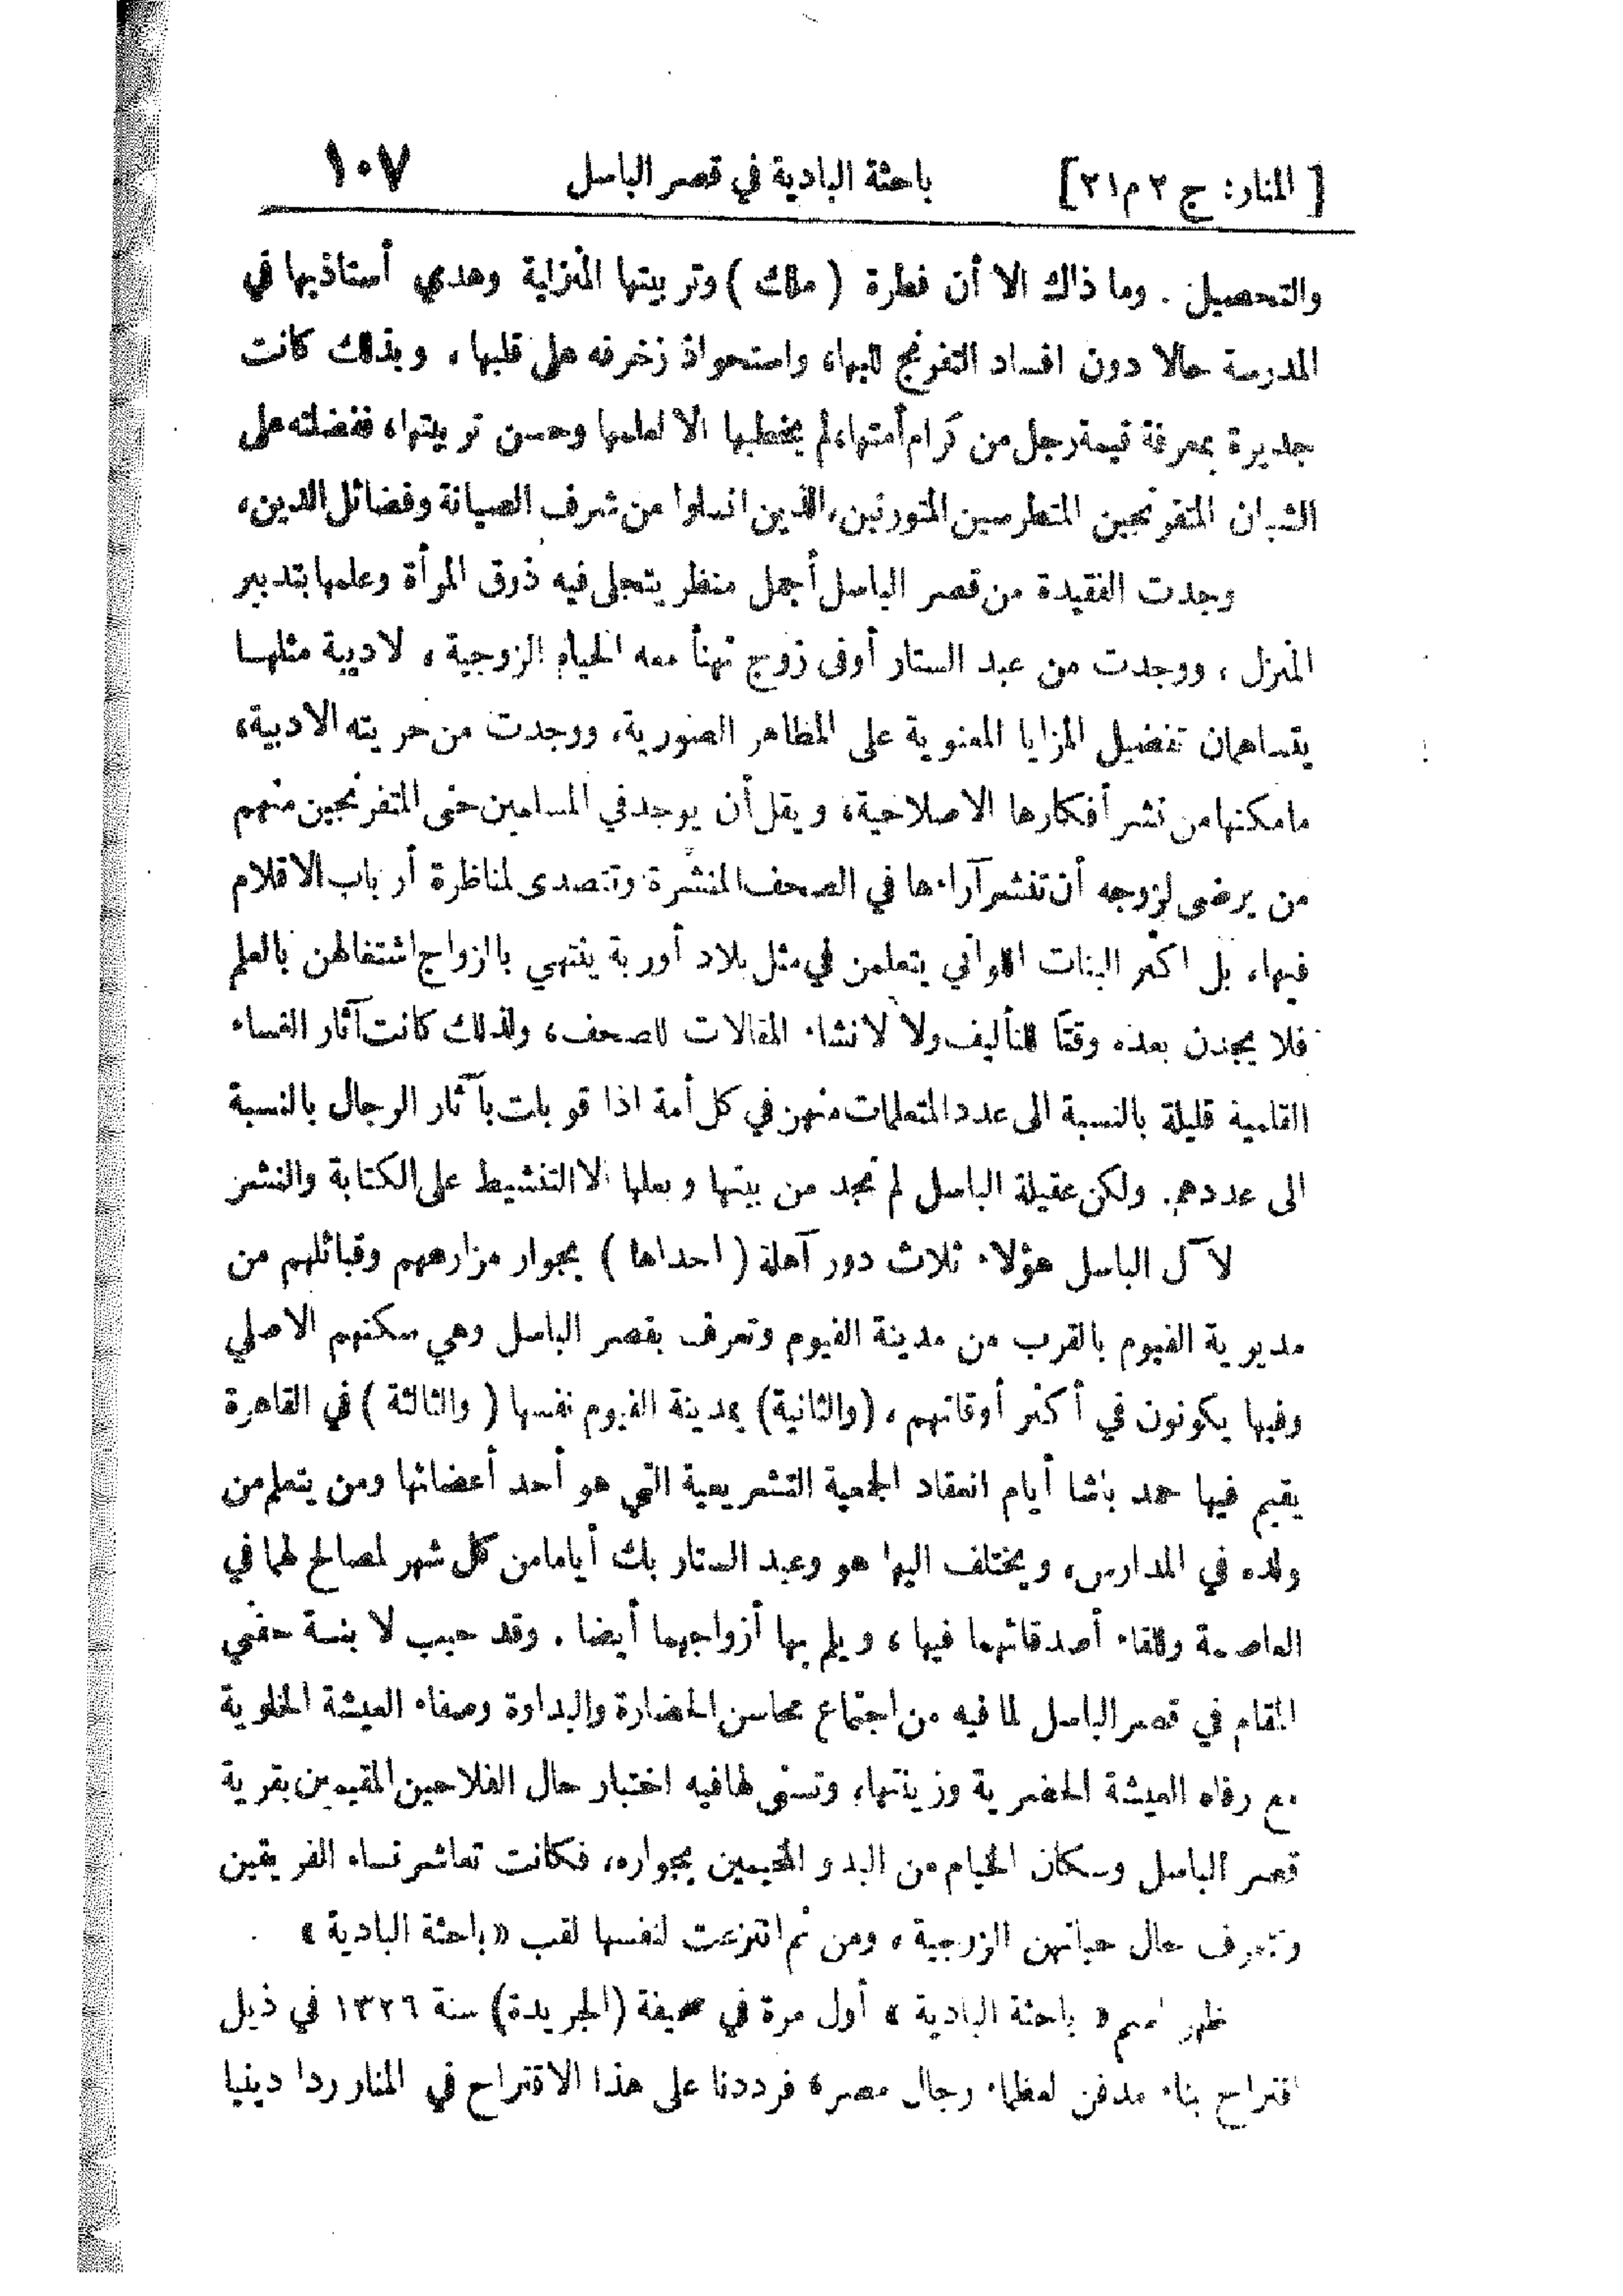 [ المنار: ج ٢ م ٢١] باحثة البادية في قصر الباسل ١٠٧
والتحصيل . وما ذاك الا أن فطرة ( ملك ) وتربيتها المنزلية وهدي أستاذيها في
المدرسة حالا دون افساد التفرنج للبها، واستحواذ زخرفه على قلبها ، وبذلك كانت
جديرة بمعرفة قيمة رجل من كرام أمتها، لم يخطبها الا لعلمها وحسن تربيتها، ففضلته على
الشبان المتفرنجين المتطرسين المتورنين، الذين انسلوا من شرف الصيانة وفضائل الدين،
وجدت الفقيدة من قصر الباسل أجمل منظر يتجلى فيه ذوق المرأة وعلمها بتدبير
المنزل ، ووجدت من عبد الستار أوفى زوج تهنأ معه الحياة الزوجية ، لاديبة مثلهـا
يتساهمان تفضيل المزايا المعنوية على المظاهر الصورية، ووجدت من حريته الادبية،
ما مكنها من نشر أفكارها الاصلاحية، ويقل أن يوجد في المسلمين حتى المتفرنجين منهم
من يرضى لزوجه أن تنشر آراءها في الصحف المنشرة وتتصدى لمناظرة أرباب الاقلام
فيها، بل اكثر البنات اللواتي يتعلمن في مثل بلاد أوربة ينتهي بالزواج اشتغالهن بالعلم
فلا يجدن بعده وقتا للتأليف ولا لانشاء المقالات للصحف، ولذلك كانت آثار النساء
القلمية قليلة بالنسبة الى عدد المتعلمات منهن في كل أمة اذا قوبلت بآثار الرجال بالنسبة
الى عددهم. ولكن عقيلة الباسل لم تجد من بيتها وبعلها الا التنشيط على الكتابة والنشر
لآل الباسل هؤلاء ثلاث دور آهلة ( احداها ) بجوار مزارعهم وقبائلهم من
مديرية الفيوم بالقرب من مدينة الفيوم وتعرف بقصر الباسل وهي سكنهم الاصلي
وفيها يكونون في أكثر أوقاتهم ، (والثانية) بمدينة الفيوم نفسها ( والثالثة ) في القاهرة
يقيم فيها حمد باشا أيام انعقاد الجمعية التشريعية التي هو أحد أعضائها ومن يتعلم من
ولده في المدارس، ويختلف اليها هو وعبد الستار بك أياما من كل شهر لمصالح لهما في
العاصمة وللقاء أصدقائهما فيها ، ويلم بها أزواجهما أيضا . وقد حبب لابنة حفني
المقام في قصر الباسل لما فيه من اجتماع محاسن الحضارة والبداوة وصفاء العيشة الخلوية
مع رفاه العيشة الحضرية وزينتها، وتسنى لها فيه اختبار حال الفلاحين المقيمين بقرية
قصر الباسل وسكان الخيام من البدو المخيمين بجواره، فكانت تعاشر نساء الفريقين
وتعرف حال حياتهن الزوجية ، ومن ثم انتزعت لنفسها لقب «باحثة البادية »
ظهر اسم « باحثة البادية » أول مرة في صحيفة (الجريدة) سنة ١٣٢٦ في ذيل
اقتراح بناء مدفن لعظماء رجال مصر، فرددنا على هذا الاقتراح في المنار ردا دينيا